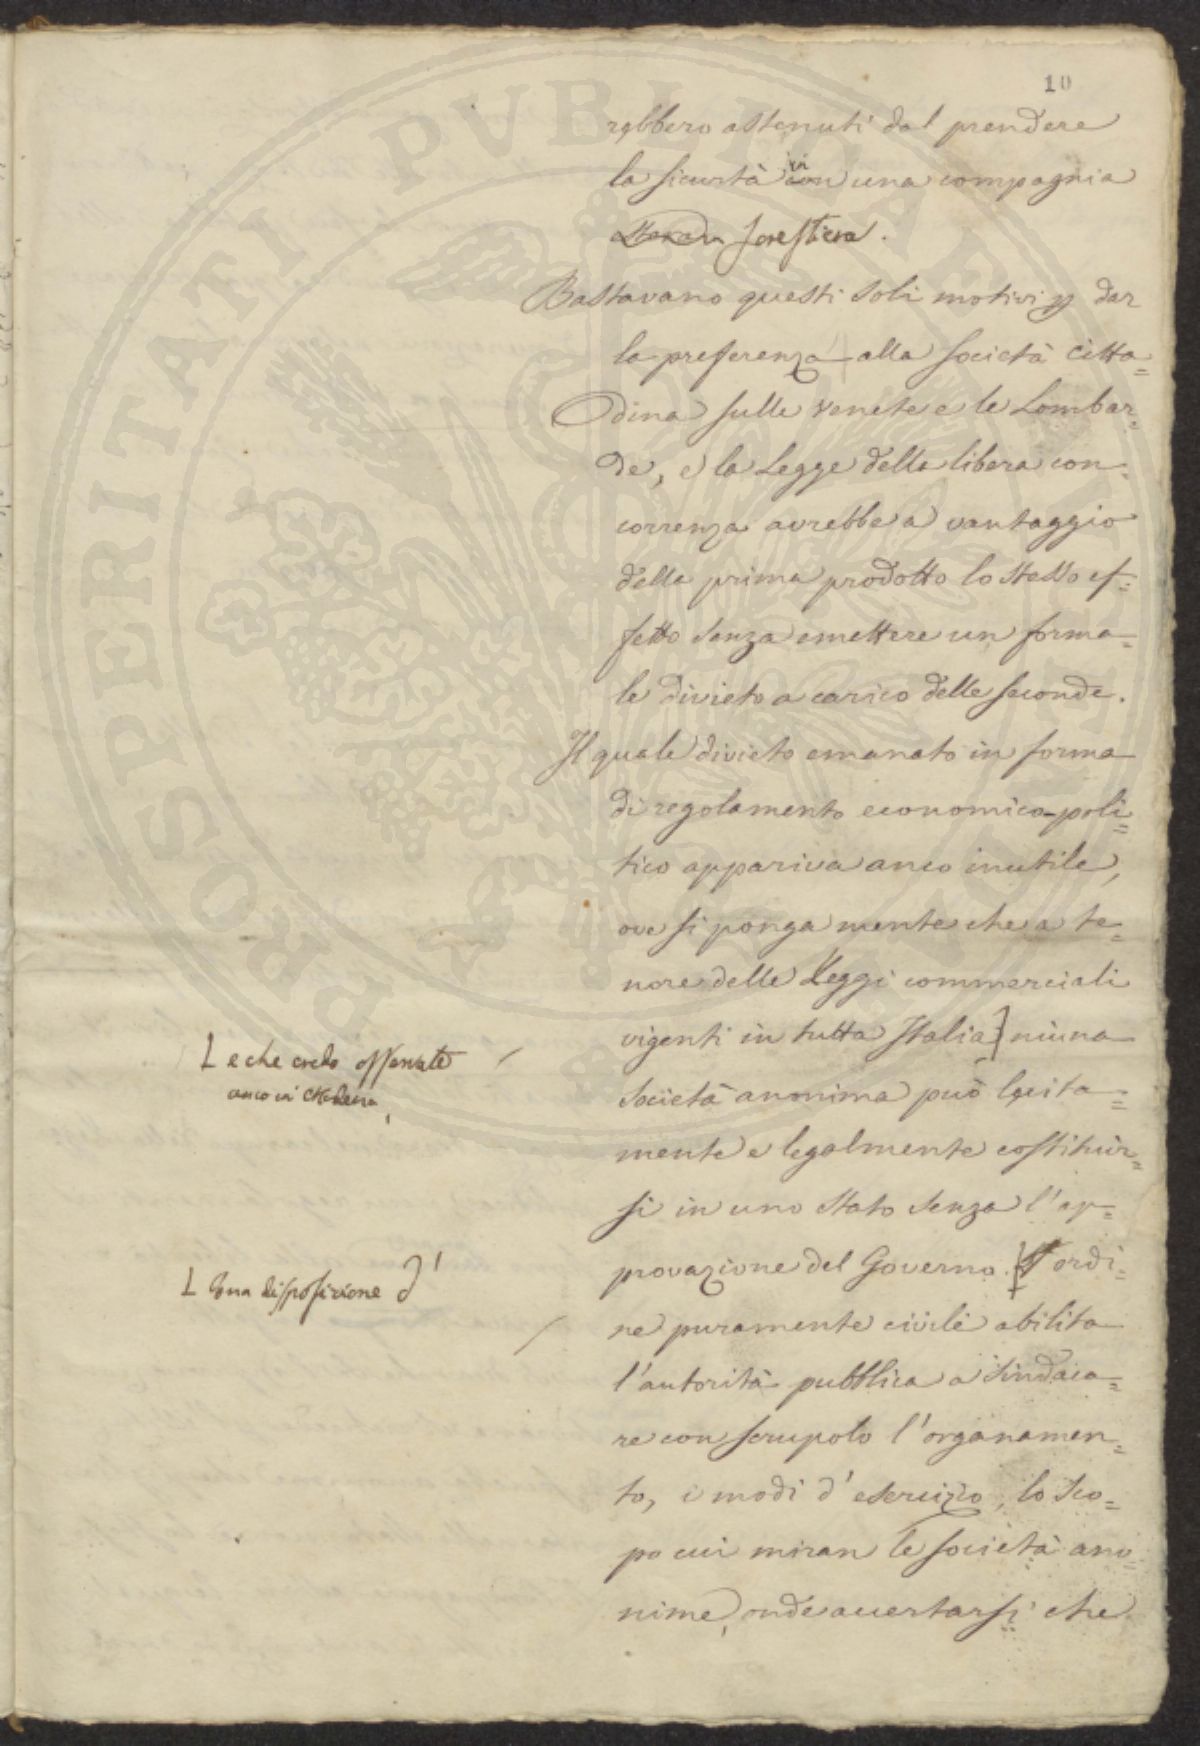 10
rebbero astenuti dal prendere
la sicurtà in con una compagnia
forestiera.
Bastavano questi soli motivi p dar
la preferenza alla società citta=
dina sulle venete e le Lombar=
de, e la Legge della libera con=
correnza avrebbe a vantaggio
della prima prodotto lo stesso ef=
fetto senza emettere un forma=
le divieto a carico delle seconde.
Il quale divieto emanato in forma
di regolamento economico-poli=
tico appariva anco inutile,
ove si ponga mente che a te=
nore delle Leggi commerciali
vigenti in tutta Italia] niuna
L e che credo osservate
anco in Modena,
società anonima può lecita=
mente e legalmente costituir=
si in uno stato senza l'ap=
provazione del Governo. ordi=
L Una disposizione d'
ne puramente civile abilita
l'autorità pubblica a sindaca=
re con scrupolo l'organamen=
to, i modi d'esercizio, lo sco=
po cui miran le società ano=
nime, onde accertarsi che
PROSPERITATI PUBLICAE